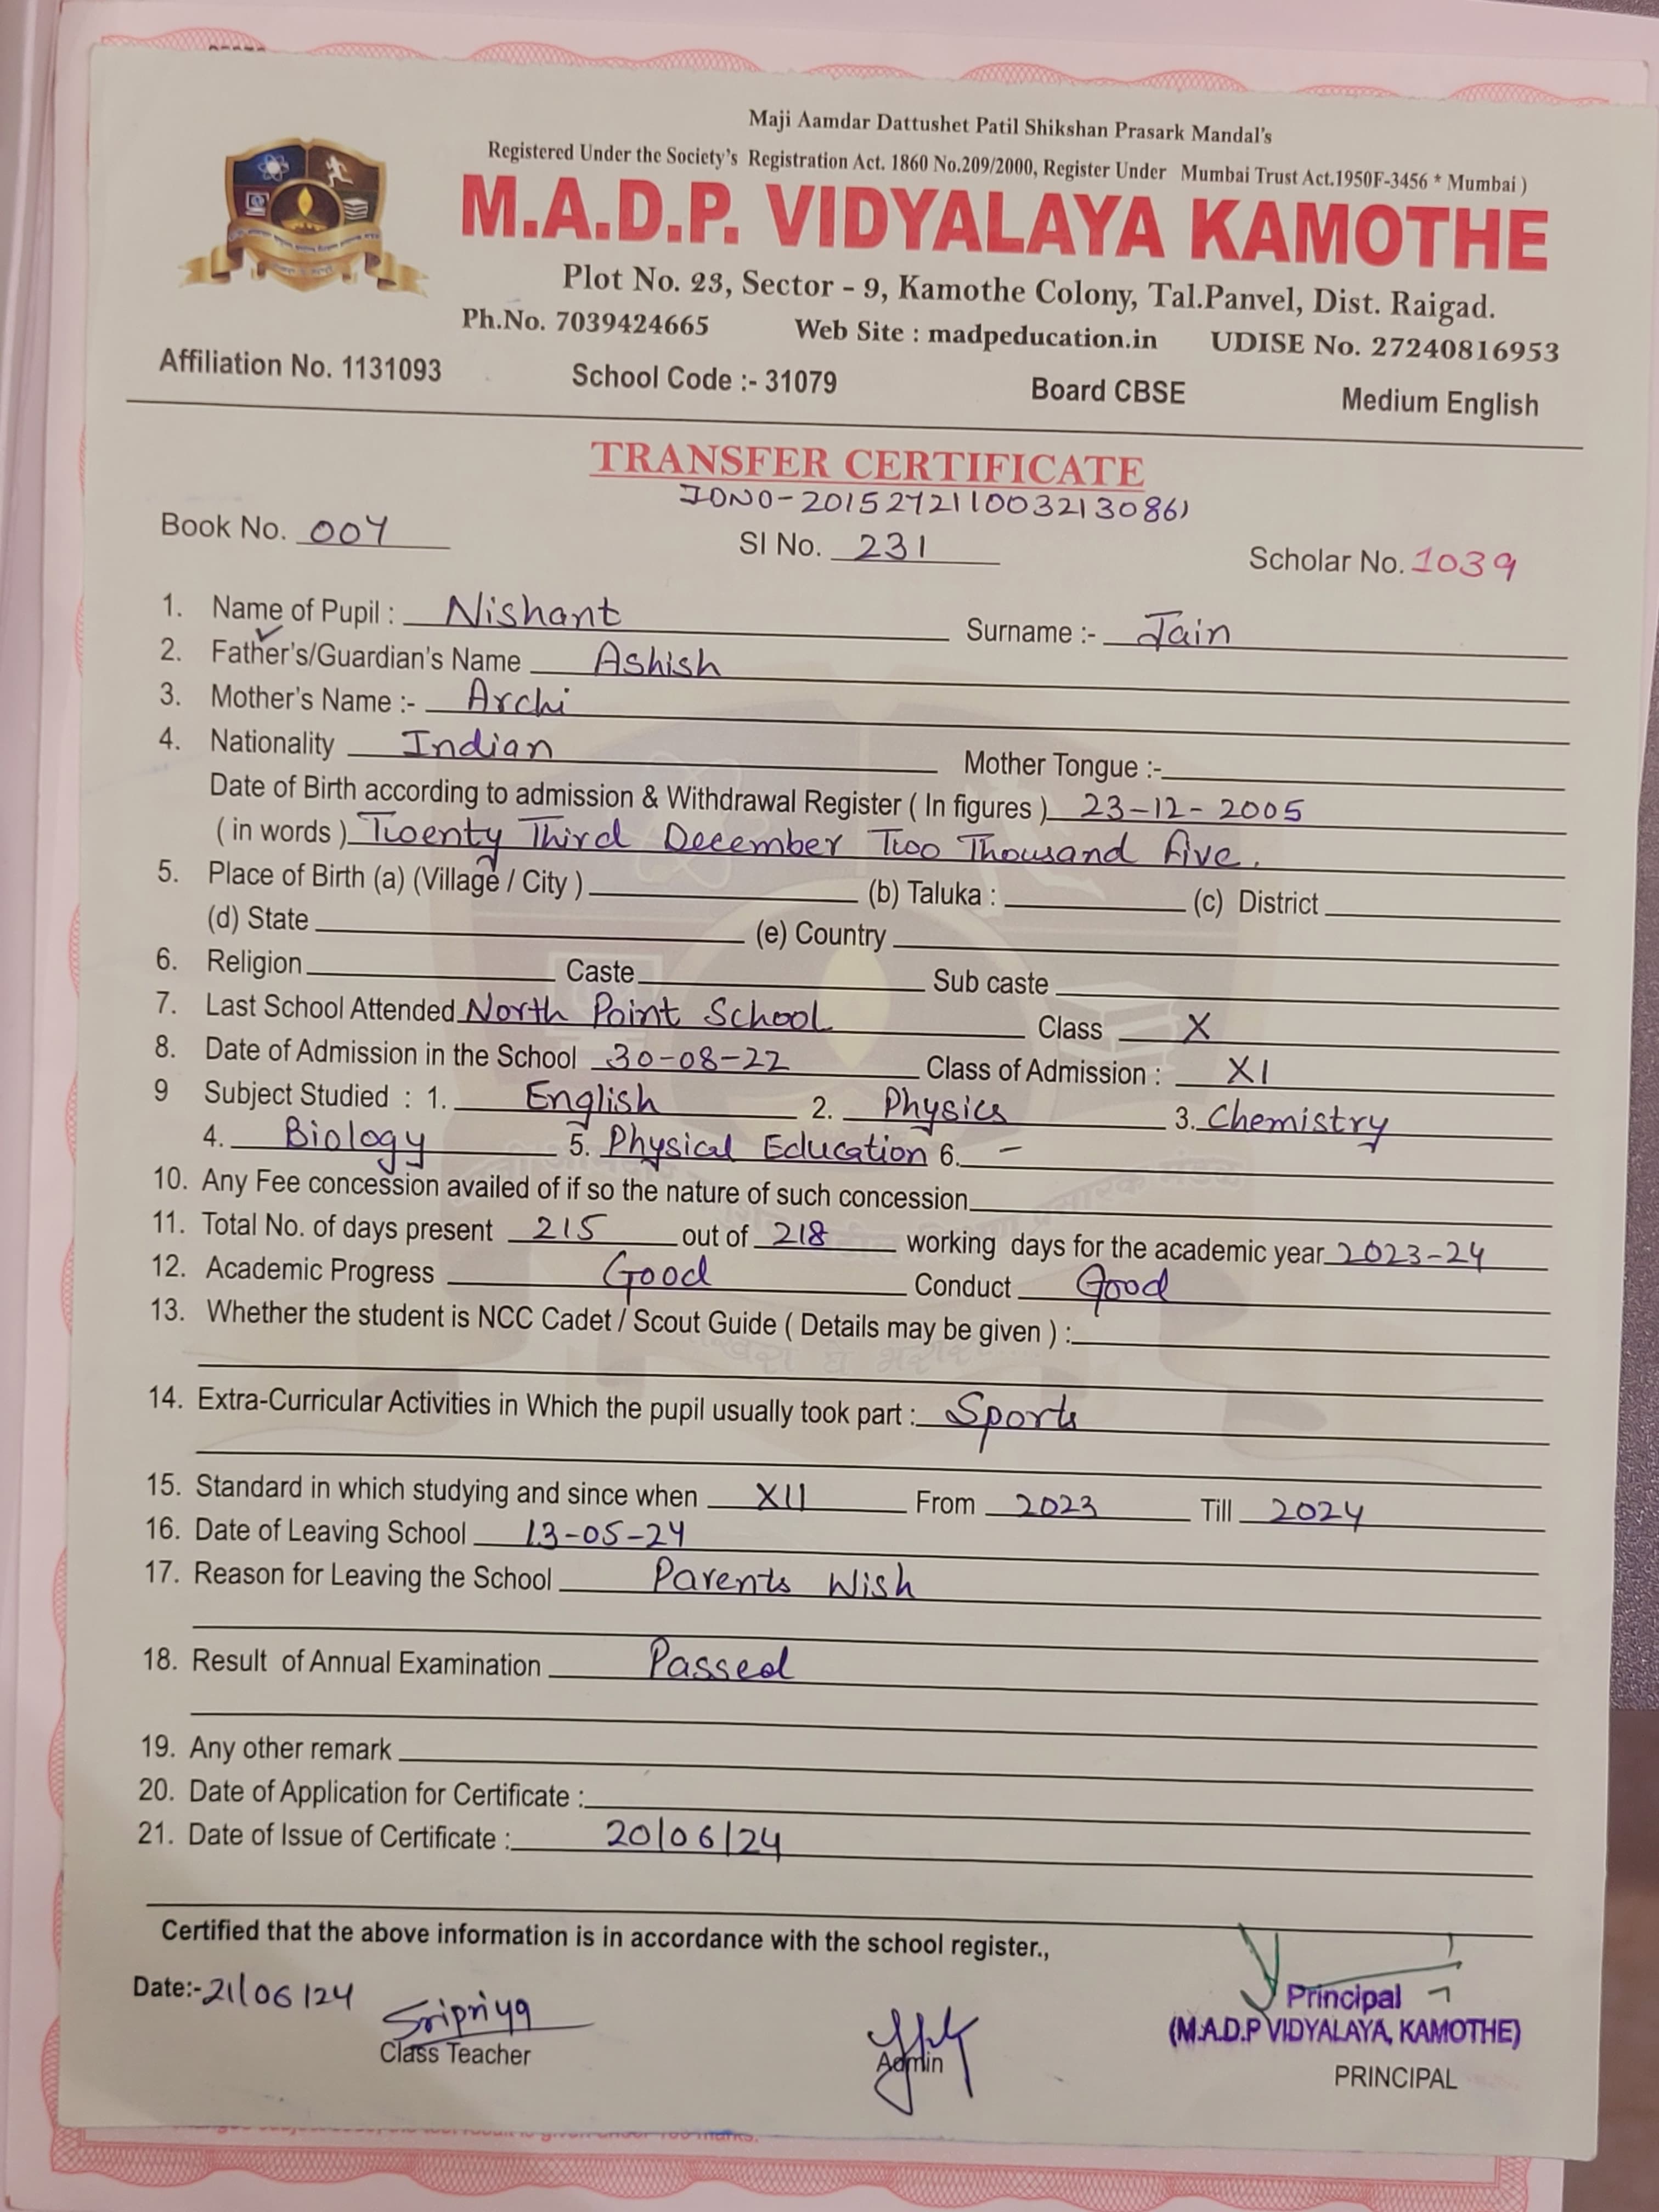 Maji Aamdar Dattushet Patil Shikshan Prasark Mandal's
Registered Under the Society's Registration Act. 1860 No.209/2000, Register Under Mumbai Trust Act.1950F-3456 * Mumbai )
M.A.D.P. VIDYALAYA KAMOTHE
Plot No. 23, Sector - 9, Kamothe Colony, Tal.Panvel, Dist. Raigad.
Ph.No. 7039424665 Web Site : madpeducation.in UDISE No. 27240816953
Affiliation No. 1131093 School Code :- 31079 Board CBSE Medium English
TRANSFER CERTIFICATE
IDNO-2015272110032130861
Book No. 004 Sl No. 231 Scholar No. 1039
1. Name of Pupil : Nishant Surname :- Jain
2. Father's/Guardian's Name Ashish
3. Mother's Name :- Archi
4. Nationality Indian Mother Tongue :-
Date of Birth according to admission & Withdrawal Register ( In figures ) 23-12-2005
( in words ) Twenty Third December Two Thousand five.
5. Place of Birth (a) (Village / City ) (b) Taluka : (c) District
(d) State (e) Country
6. Religion Caste Sub caste
7. Last School Attended North Point School Class X
8. Date of Admission in the School 30-08-22 Class of Admission : XI
9 Subject Studied : 1. English 2. Physics 3. Chemistry
4. Biology 5. Physical Education 6. -
10. Any Fee concession availed of if so the nature of such concession
11. Total No. of days present 215 out of 218 working days for the academic year 2023-24
12. Academic Progress Good Conduct Good
13. Whether the student is NCC Cadet / Scout Guide ( Details may be given ) :
14. Extra-Curricular Activities in Which the pupil usually took part : Sports
15. Standard in which studying and since when XII From 2023 Till 2024
16. Date of Leaving School 13-05-24
17. Reason for Leaving the School Parents Wish
18. Result of Annual Examination Passed
19. Any other remark
20. Date of Application for Certificate :
21. Date of Issue of Certificate : 20/06/24
Certified that the above information is in accordance with the school register.,
Date:- 21/06/24 Sripriya
Class Teacher
Admin
Principal
(M.A.D.P VIDYALAYA, KAMOTHE)
PRINCIPAL